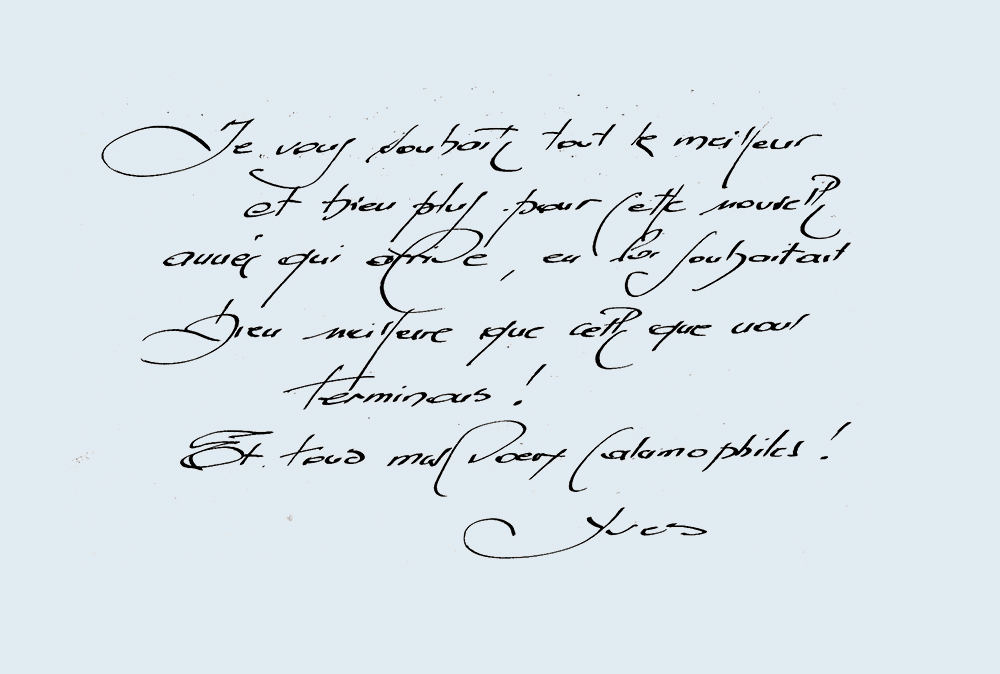 Je vous souhaite tout le meilleur
et bien plus pour cette nouvelle
année qui arrive, en la souhaitant
bien meilleure que celle que nous
terminons !
Et tous mes voeux calamophiles !
Yves